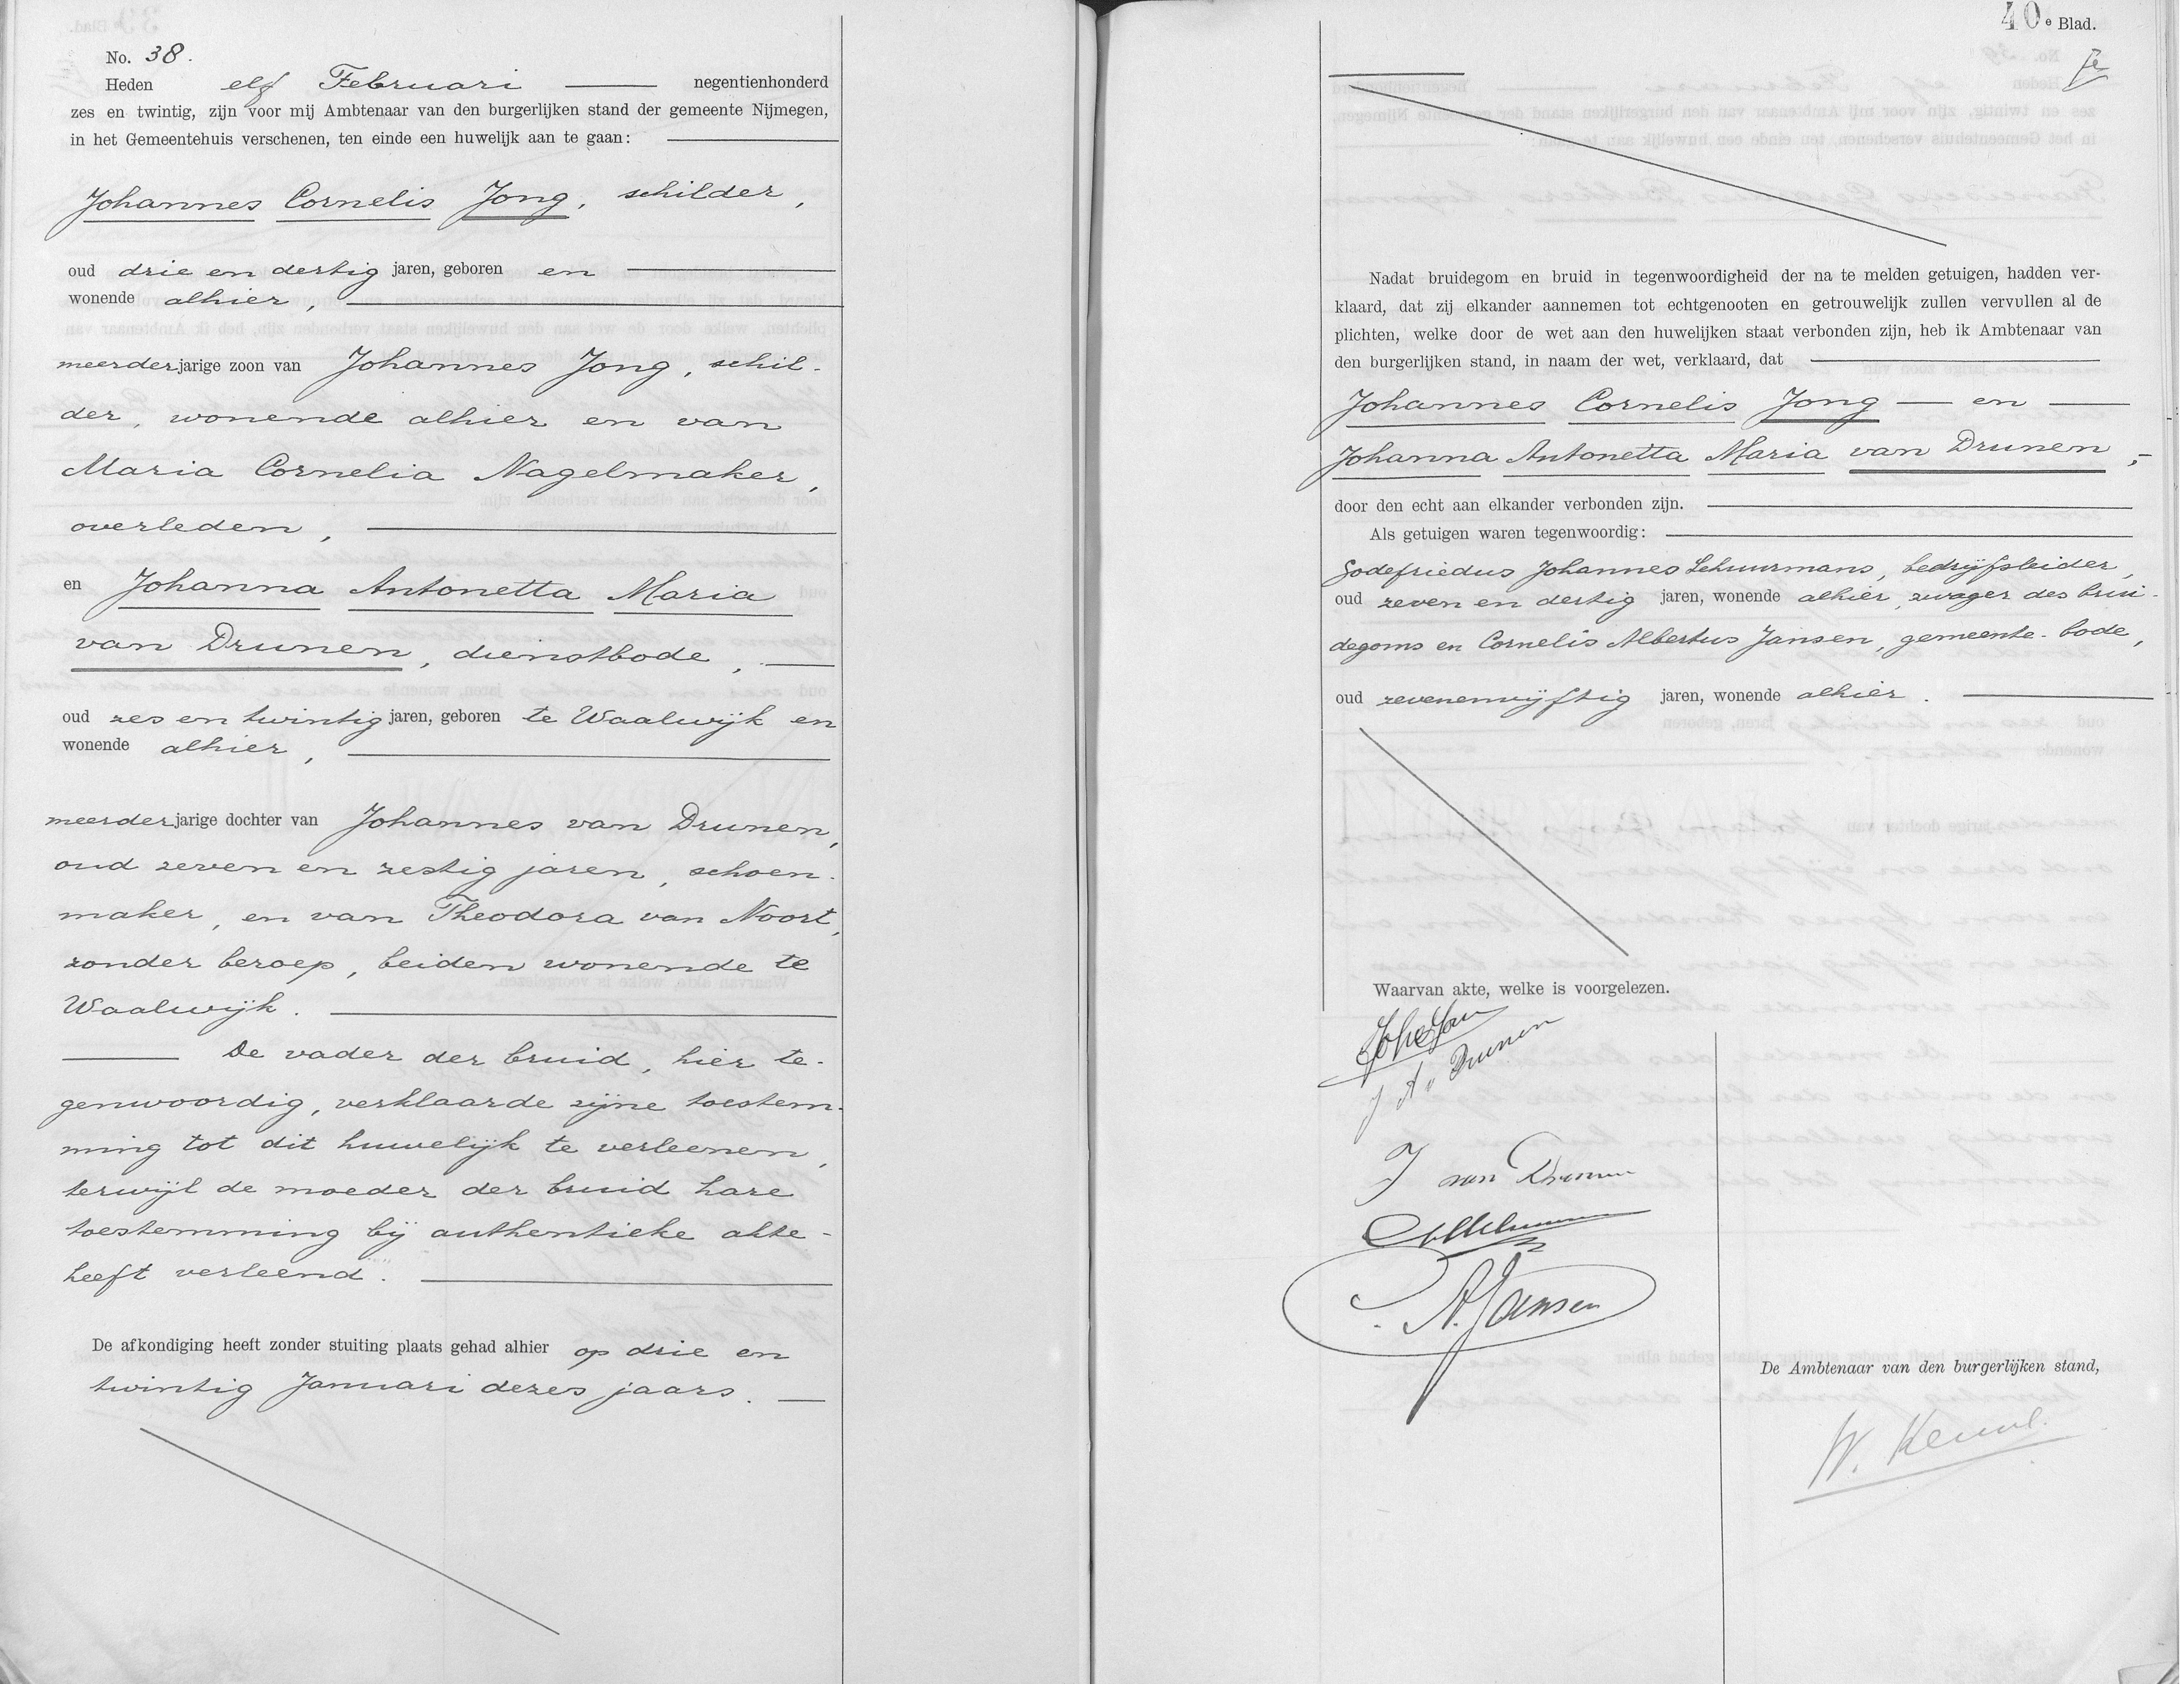 No. 38.
Heden elf Februari negentienhonderd
zes en twintig, zijn voor mij Ambtenaar van den burgerlijken stand der gemeente Nijmegen,
in het Gemeentehuis verschenen, ten einde een huwelijk aan te gaan:
Johannes Cornelis Jong, schilder,
oud drie en dertig jaren, geboren en
wonende alhier,
meerderjarige zoon van Johannes Jong, schil-
der, wonende alhier en van
Maria Cornelia Nagelmaker,
overleden,
en Johanna Antonetta Maria
van Drunen, dienstbode,
oud zes en twintig jaren, geboren te Waalwijk en
wonende alhier,
meerderjarige dochter van Johannes van Drunen,
oud zeven en zestig jaren, schoen-
maker, en van Theodora van Noort,
zonder beroep, beiden wonende te
Waalwijk.
De vader der bruid, hier te-
genwoordig, verklaarde zijne toestem-
ming tot dit huwelijk te verleenen,
terwijl de moeder der bruid hare
toestemming bij authentieke akte
heeft verleend.
De afkondiging heeft zonder stuiting plaats gehad alhier op drie en
twintig Januari dezes jaars.
40e Blad.
Nadat bruidegom en bruid in tegenwoordigheid der na te melden getuigen, hadden ver-
klaard, dat zij elkander aannemen tot echtgenooten en getrouwelijk zullen vervullen al de
plichten, welke door de wet aan den huwelijken staat verbonden zijn, heb ik Ambtenaar van
den burgerlijken stand, in naam der wet, verklaard, dat
Johannes Cornelis Jong — en —
Johanna Antonetta Maria van Drunen,
door den echt aan elkander verbonden zijn.
Als getuigen waren tegenwoordig:
Godefriedus Johannes Schuurmans, bedrijfsleider,
oud zeven en dertig jaren, wonende alhier, zwager des brui-
degoms en Cornelis Albertus Jansen, gemeente-bode,
oud zevenenvijftig jaren, wonende alhier.
Waarvan akte, welke is voorgelezen.
J A v Drunen
J van Drunen
C. A. Jansen
De Ambtenaar van den burgerlijken stand,